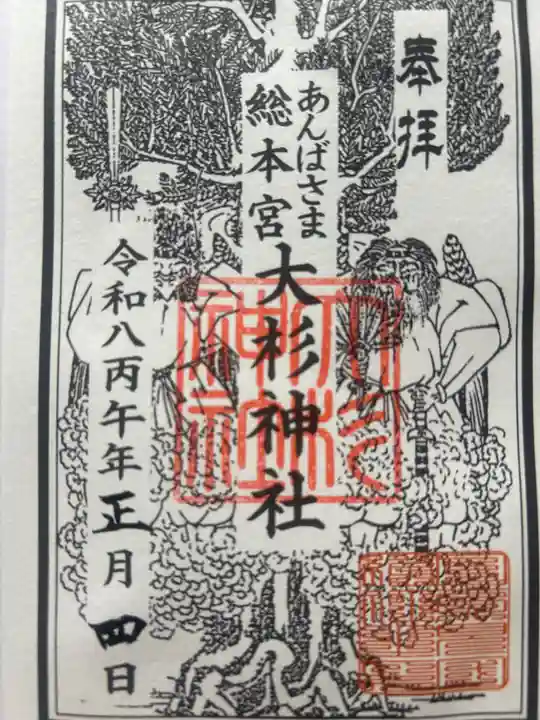 奉拝
あんばさま
総本宮
大杉神社
令和八丙午年正月四日
大杉神社